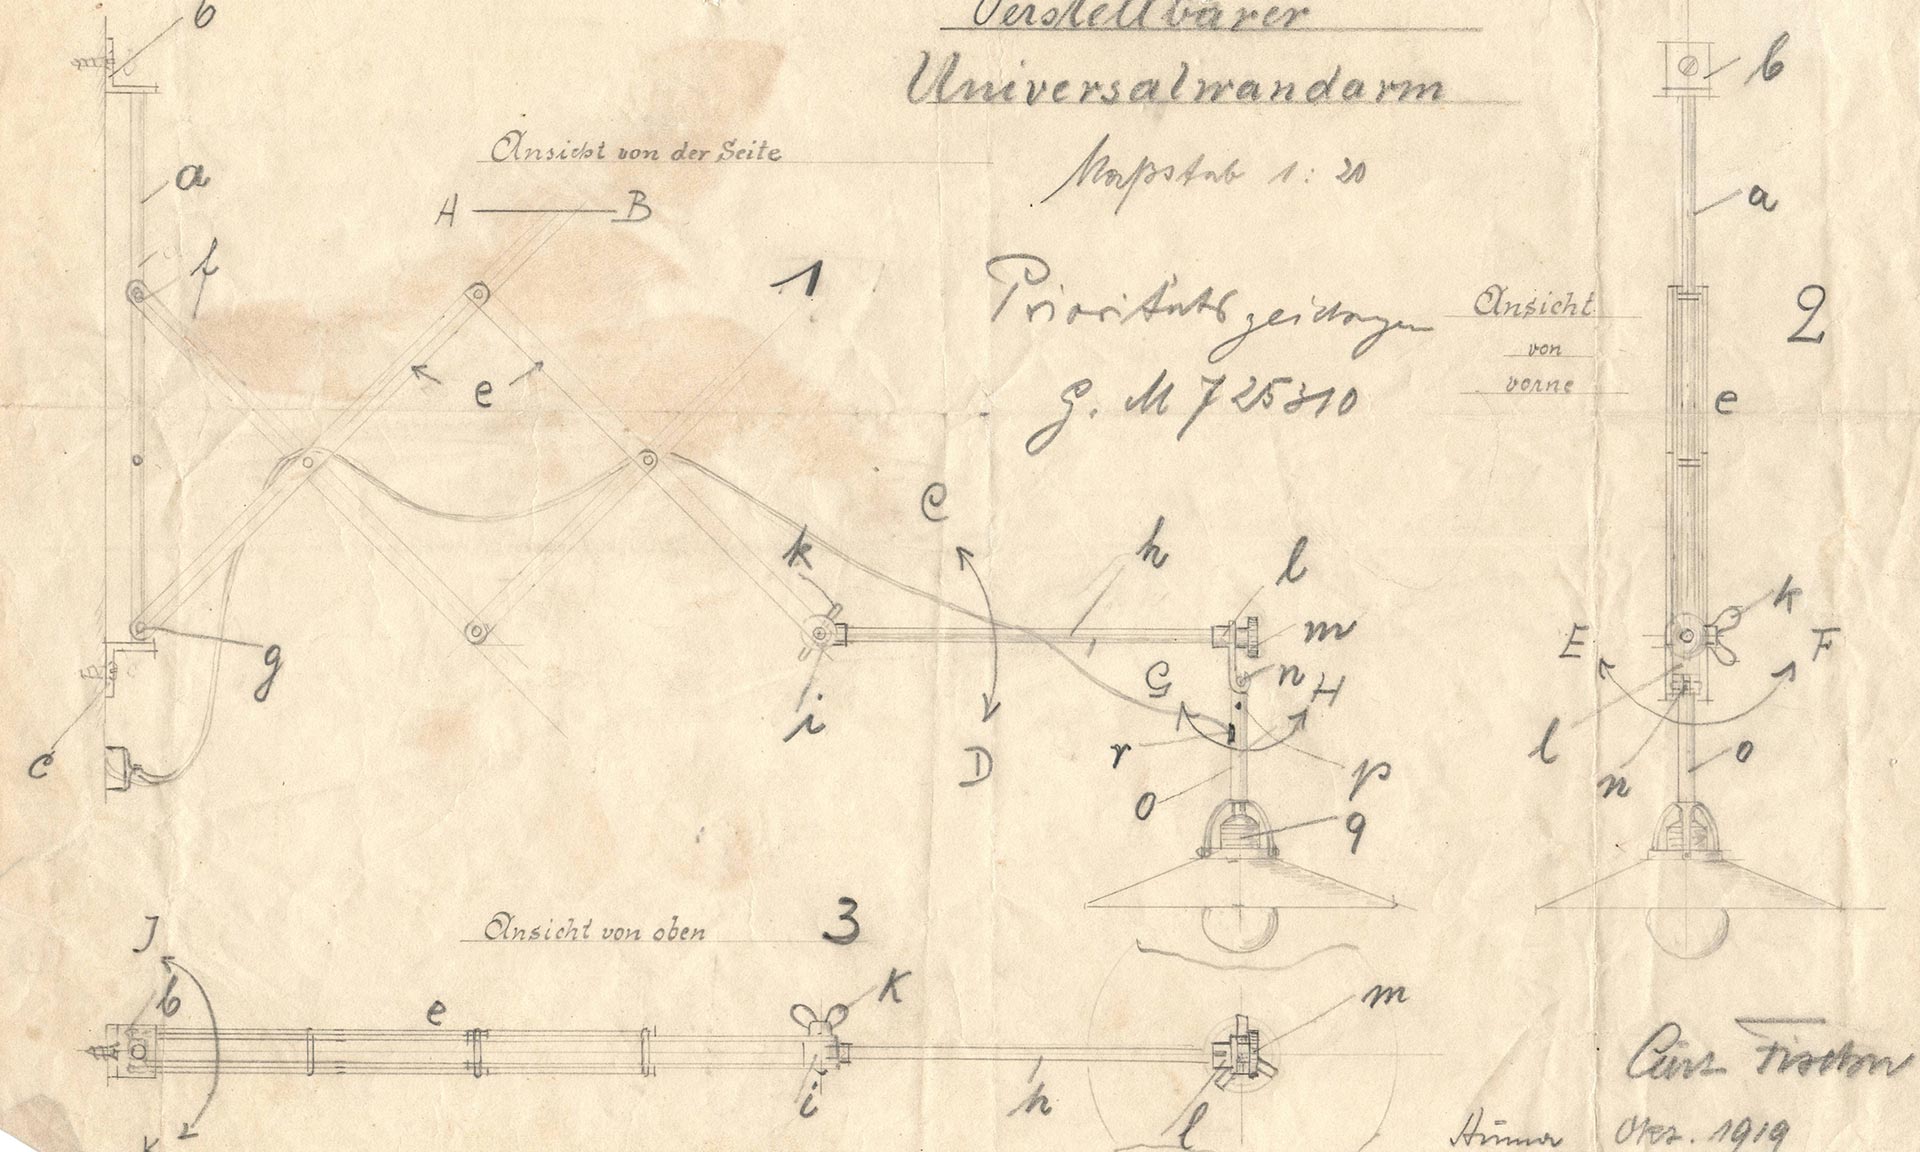 Verstellbarer
Universalwandarm
Maßstab 1:20
Prioritäts zeichnungen
G. M 725310
Ansicht von der Seite
A
B
1
b
a
f
e
g
c
C
D
k
i
h
l
m
n
G
H
r
o
p
q
Ansicht
von
vorne
2
b
a
e
k
E
F
l
n
o
Ansicht von oben
3
J
b
e
K
i
h
l
m
Curt Fischer
1919